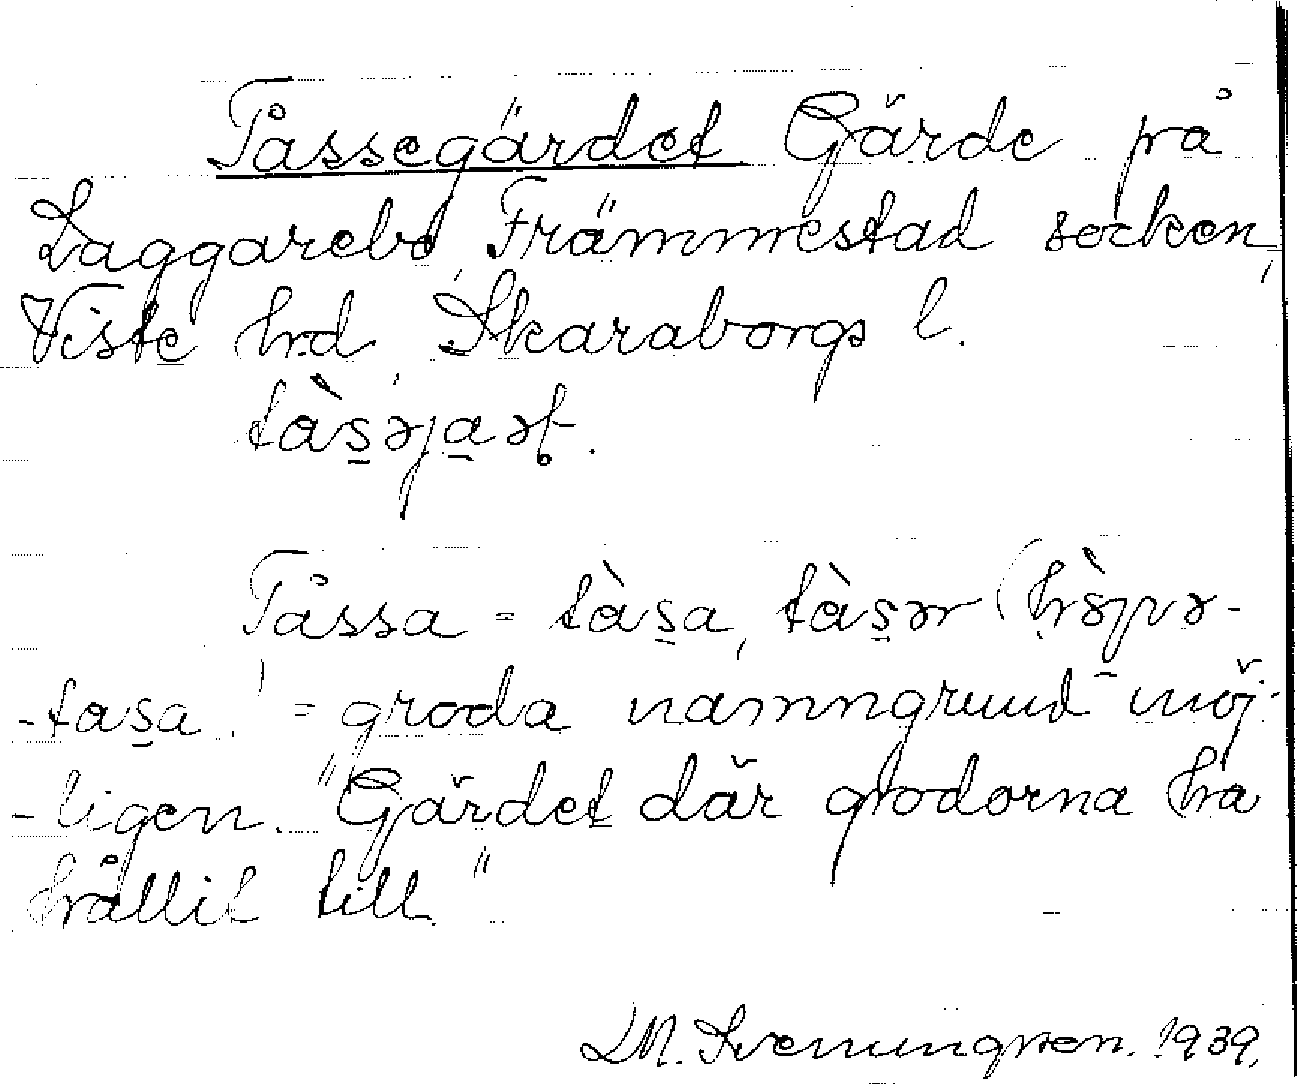 Tåssegärdet Gärde på
Laggarebo, Främmestad socken,
Viste hrd, Skaraborgs l.
tàs̲əja̲əʈ.
Tåssa = tàs̲a, tàs̲ər (hòpə-
-tas̲a) = groda namngrund möj-
-ligen. "Gärdet där grodorna ha
hållit till."
LM. Svenungsson. 1939.